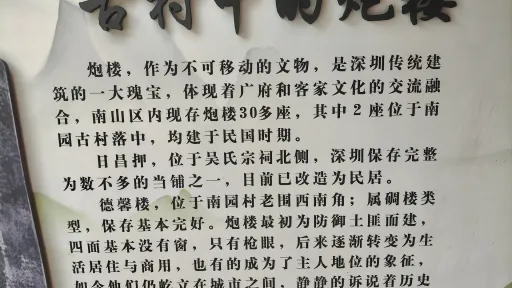 古村中的炮楼
炮楼，作为不可移动的文物，是深圳传统建
筑的一大瑰宝，体现着广府和客家文化的交流融
合，南山区内现存炮楼30多座，其中2座位于南
园古村落中，均建于民国时期。
日昌押，位于吴氏宗祠北侧，深圳保存完整
为数不多的当铺之一，目前已改造为民居。
德馨楼，位于南园村老围西南角；属碉楼类
型，保存基本完好。炮楼最初为防御土匪而建，
四面基本没有窗，只有枪眼，后来逐渐转变为生
活居住与商用，也有的成为了主人地位的象征，
如今他们仍屹立在城市之间，静静的诉说着历史